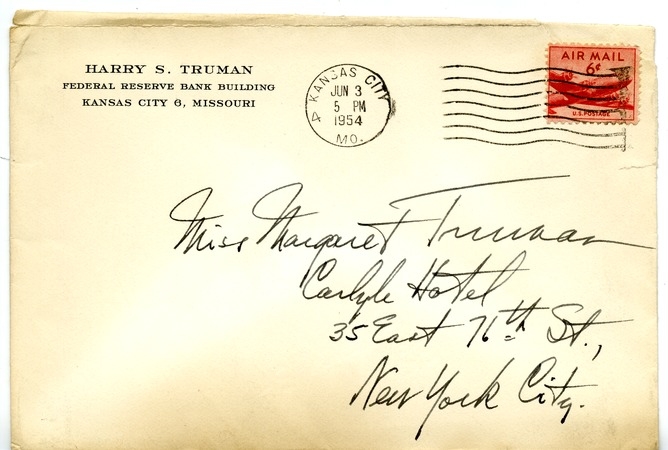 HARRY S. TRUMAN
FEDERAL RESERVE BANK BUILDING
KANSAS CITY 6, MISSOURI
KANSAS CITY 4
JUN 3
5 PM
1954
MO.
AIR MAIL
6¢
U.S. POSTAGE
Miss Margaret Truman
Carlyle Hotel
35 East 76th St.,
New York City.